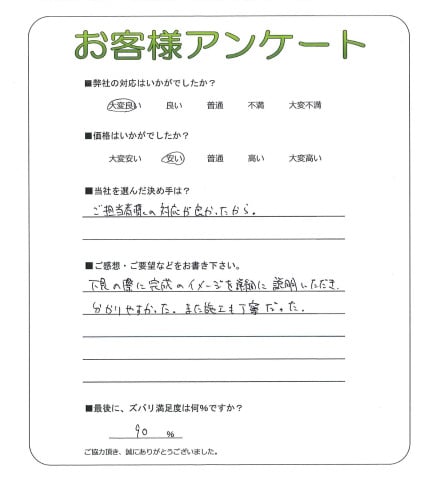 お客様アンケート
■弊社の対応はいかがでしたか?
大変良い 良い 普通 不満 大変不満
■価格はいかがでしたか?
大変安い 安い 普通 高い 大変高い
■当社を選んだ決め手は?
ご担当者様の対応が良かったから。
■ご感想・ご要望などをお書き下さい。
の際に完成のイメージを詳細に説明いただき、
分かりやすかった。また施工も丁寧だった。
■最後に、ズバリ満足度は何%ですか?
90 %
ご協力頂き、誠にありがとうございました。